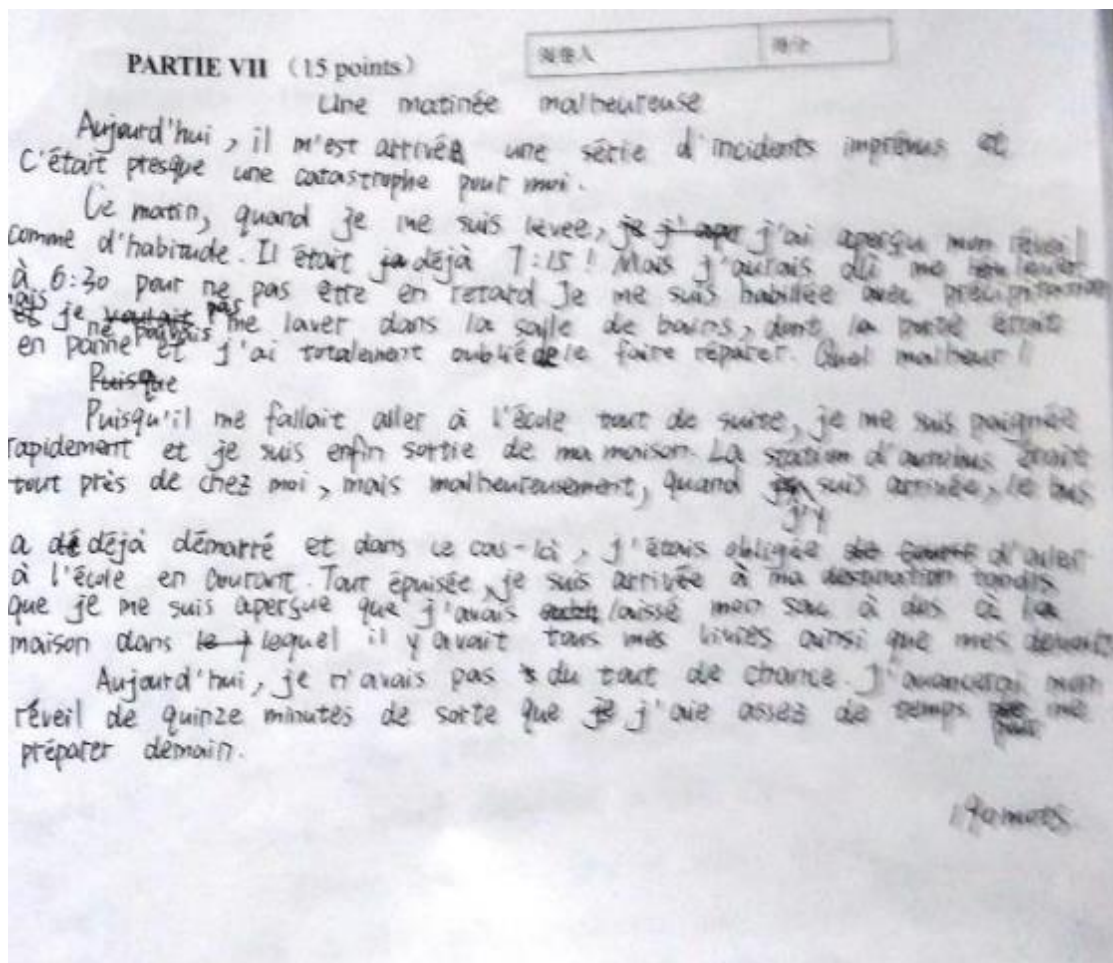 PARTIE VII (15 points)
Une matinée malheureuse
Aujourd'hui, il m'est arrivée une série d'incidents imprévus et
C'était presque une catastrophe pour moi.
Ce matin, quand je me suis levée, je j'aper j'ai aperçu mon réveil
comme d'habitude. Il était ja déjà 7:15 ! Mais j'aurais dû me lever
à 6:30 pour ne pas être en retard Je me suis habillée avec précipitation
mais je voulait ne pouvais pas me laver dans la salle de bains, dont la porte était
en panne et j'ai totalement oublié de le faire réparer. Quel malheur !
Puisque
Puisqu'il me fallait aller à l'école tout de suite, je me suis peignée
rapidement et je suis enfin sortie de ma maison. La station d'autobus était
tout près de chez moi, mais malheureusement, quand j'y suis arrivée, le bus
a dé déjà démarré et dans ce cas-là, j'étais obligée d'aller
à l'école en courant. Tout épuisée, je suis arrivée à ma destination tandis
que je me suis aperçue que j'avais laissé mon sac à dos à la
maison dans le lequel il y avait tous mes livres ainsi que mes devoirs
Aujourd'hui, je n'avais pas du tout de chance. J'avancerai mon
réveil de quinze minutes de sorte que je j'aie assez de temps pour me
préparer demain.
mots.